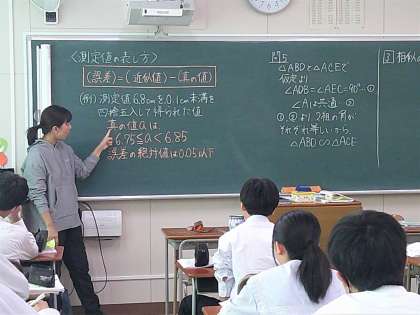 〈測定値の表し方〉
(誤差)=(近似値)-(真の値)
(例)測定値6.8cmを0.1cm未満を
四捨五入して得られた値
真の値aは
6.75≦a<6.85
誤差の絶対値は0.05以下
問5
△ABDと△ACEで
仮定より
∠ADB=∠AEC=90°-①
∠Aは共通-②
①,②より2組の角が
それぞれ等しいから
△ABD∽△ACE